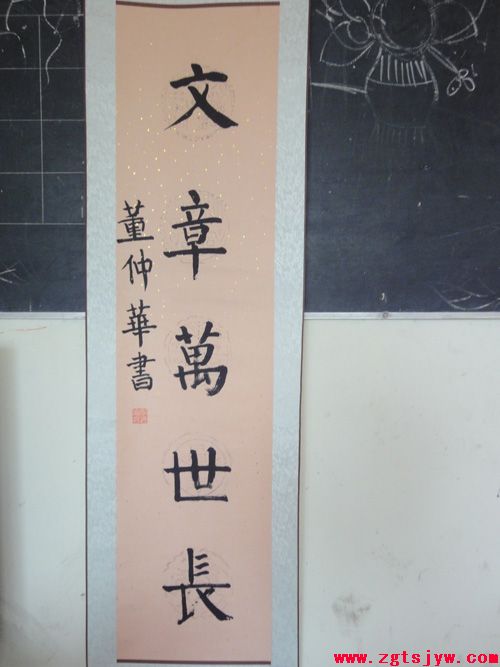 文章萬世長
董仲華書
www.zgtsjyw.com